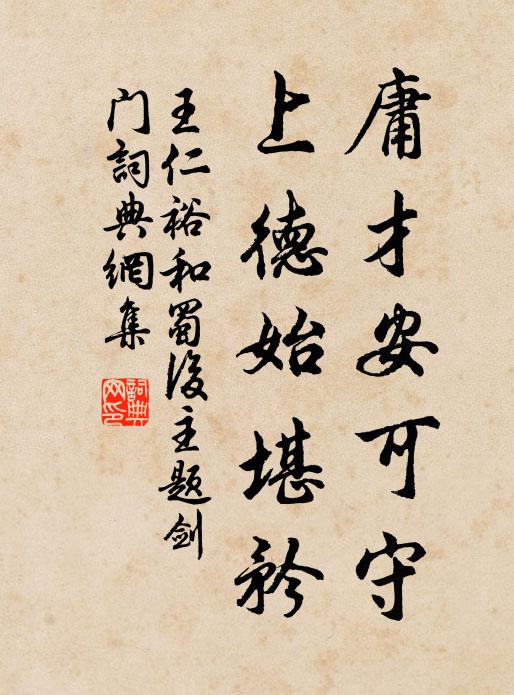 庸才安可守
上德始堪矜
王仁裕和蜀後主题剑
门詞典網集
詞典
网印